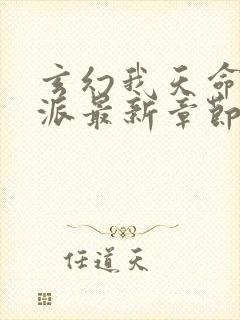 玄幻我天命
派最新章節
任道天